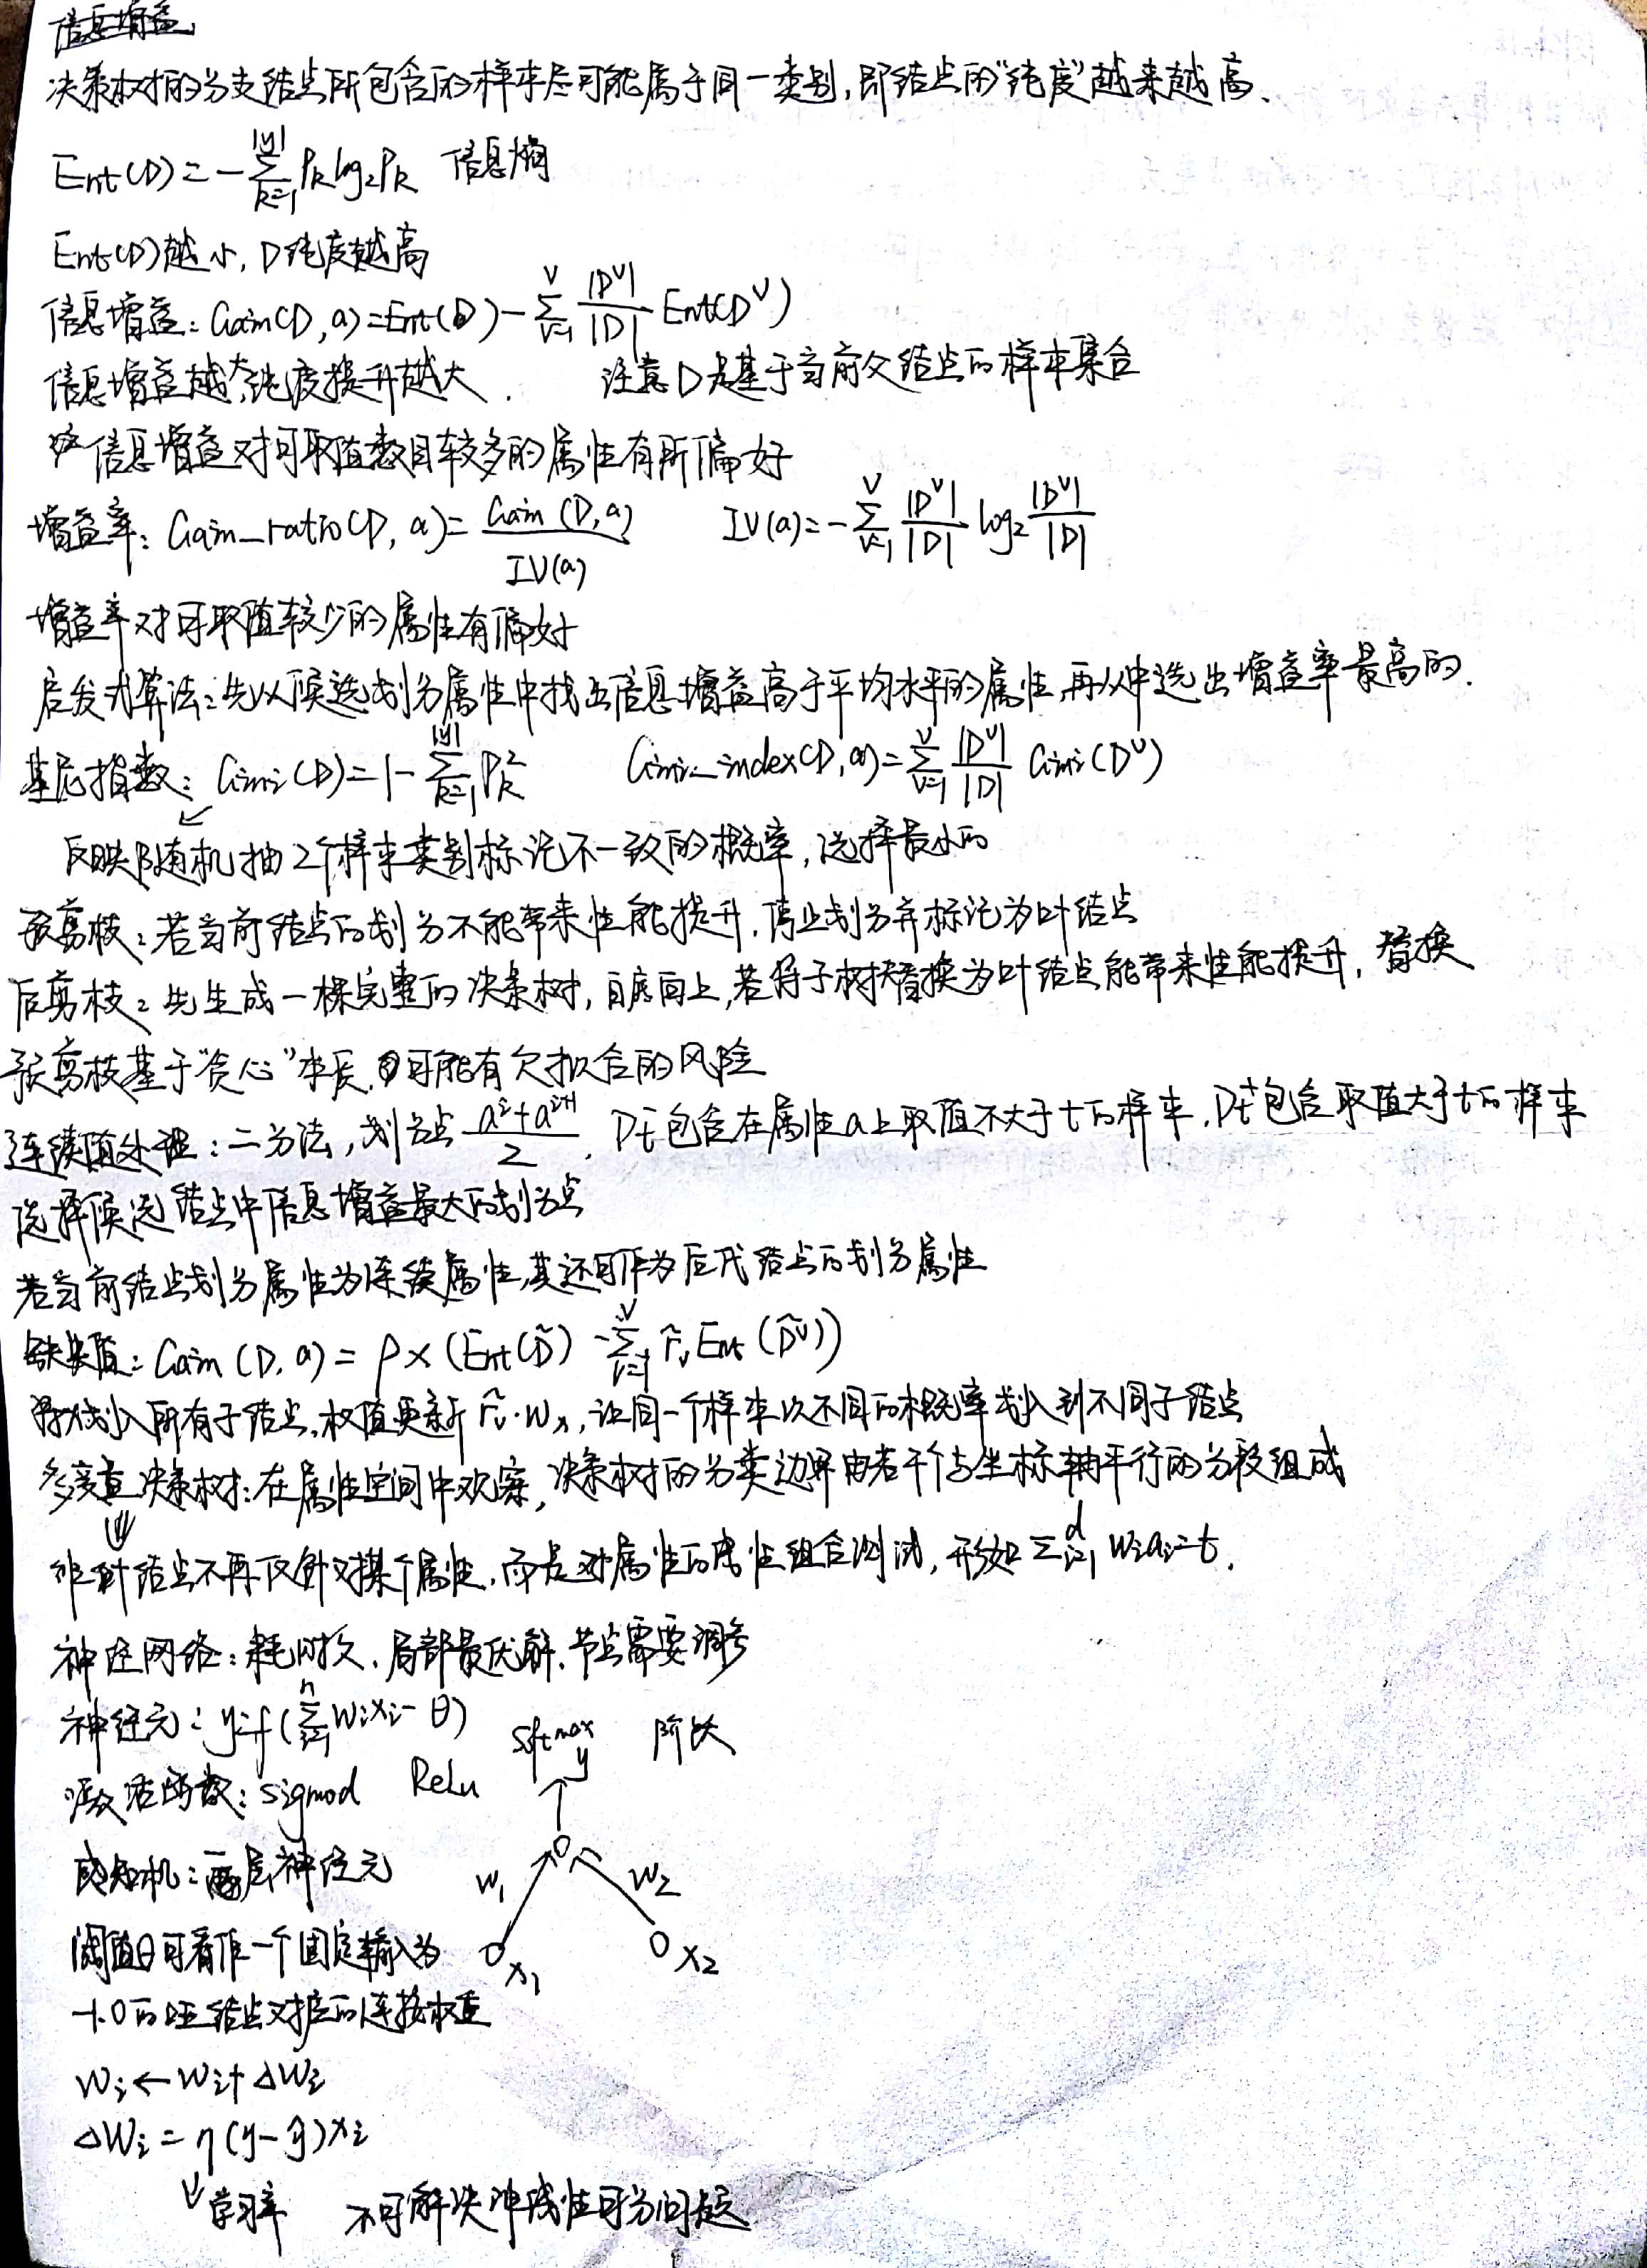 信息增益
决策树的分支结点所包含的样本尽可能属于同一类别,即结点的“纯度”越来越高、
Ent(D)=-∑_{k=1}^{|y|} P_k log_2 P_k 信息熵
Ent(D)越小, D纯度越高
信息增益: Gain(D, a)=Ent(D)-∑_{v=1}^{V} |D^v|/|D| Ent(D^v)
信息增益越大,纯度提升越大. 注意D是基于当前父结点的样本集合
信息增益对可取值数目较多的属性有所偏好
增益率: Gain_ratio(D, a)=Gain(D,a)/IV(a) IV(a)=-∑_{v=1}^{V} |D^v|/|D| log_2 |D^v|/|D|
增益率对可取值较少的属性有偏好
启发式算法:先从候选划分属性中找出信息增益高于平均水平的属性,再从中选出增益率最高的.
基尼指数: Gini(D)=1-∑_{k=1}^{|y|} P_k^2 Gini_index(D,a)=∑_{v=1}^{V} |D^v|/|D| Gini(D^v)
↙
反映随机抽2个样本类别标记不一致的概率,选择最小的
预剪枝:若当前结点的划分不能带来性能提升,停止划分并标记为叶结点
后剪枝:先生成一棵完整的决策树,自底向上,若将子树替换为叶结点能带来性能提升, 替换
预剪枝基于“贪心”本质,可能有欠拟合的风险
连续值处理:二分法,划分点 (a^i+a^{i+1})/2 . D_t^-包含在属性a上取值不大于t的样本, D_t^+包含取值大于t的样本
选择候选结点中信息增益最大的划分点
若当前结点划分属性为连续属性,其还可作为后代结点的划分属性
缺失值: Gain(D, a) = ρ×(Ent(D̃) -∑_{v=1}^{V} r̃_v Ent(D̃^v))
将x划入所有子结点,权值更新 r̃_v·w_x, 让同一个样本以不同的概率划入到不同子结点
多变量决策树:在属性空间中观察, 决策树的分类边界由若干个与坐标轴平行的分段组成
⇓
非叶结点不再仅针对某个属性,而是对属性的线性组合测试, 形如 ∑_{i=1}^{d} w_i a_i=t.
神经网络:耗时久、局部最优解、节点需要调参
神经元: y=f(∑_{i=1}^{n} w_i x_i-θ)
激活函数: sigmod ReLu softmax 阶跃
y
感知机:两层神经元
w_1 w_2
阈值θ可看作一个固定输入为
x_1 x_2
-1.0的哑结点对应的连接权重
w_i←w_i+Δw_i
Δw_i=η(y-ŷ)x_i
↓学习率 不可解决非线性可分问题